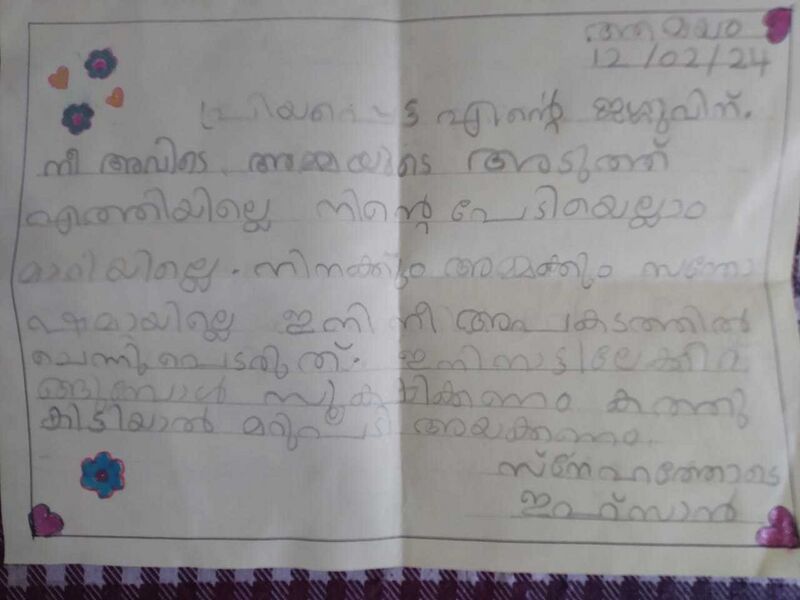 അമയം
12/02/24
പ്രിയപ്പെട്ട എന്റെ ജഗ്ഗുവിന്.
നീ അവിടെ അമ്മയുടെ അടുത്ത്
എത്തിയില്ലെ നിന്റെ പേടിയെല്ലാം
മാറിയില്ലെ. നിനക്കും അമ്മക്കും സന്തോ
ഷമായില്ലെ ഇനി നീ അപകടത്തിൽ
ചെന്നുപെടരുത്. ഇനി നാട്ടിലേക്കിറ
ങ്ങുമ്പോൾ സൂക്ഷിക്കണം കത്തു
കിട്ടിയാൽ മറുപടി അയക്കണം.
സ്നേഹത്തോടെ
ഇഹ്സാൻ